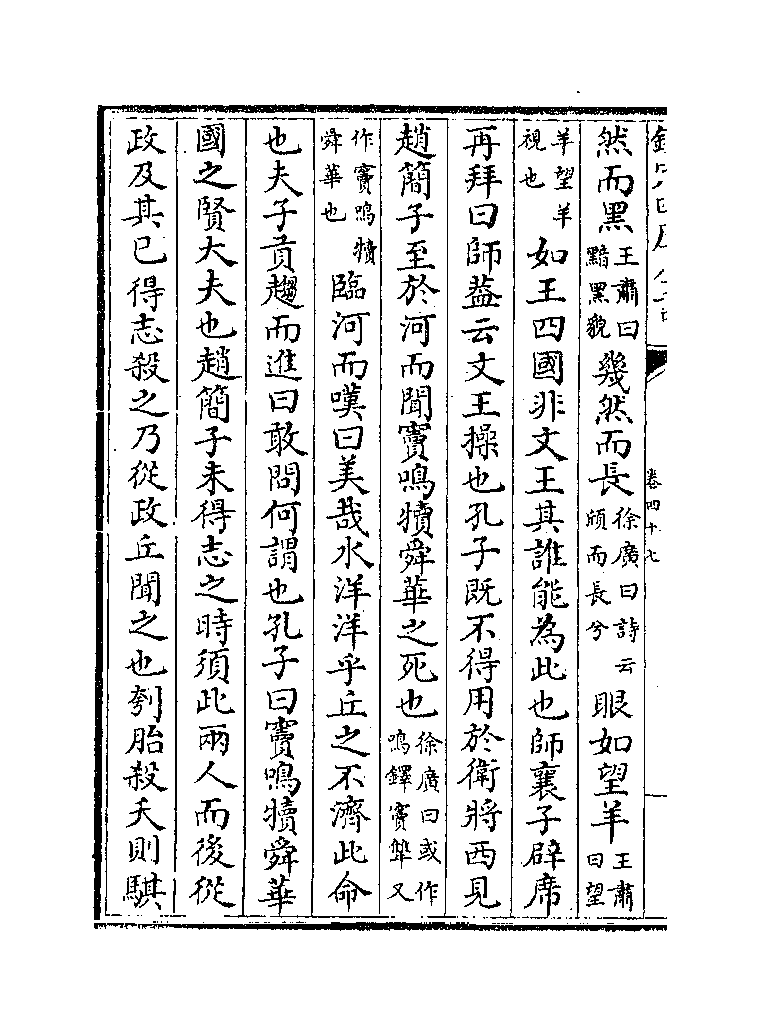 卷四十七
然而黑王肅曰黯黑貌幾然而長徐廣曰詩云頎而長兮眼如望羊王肅曰望
羊望羊視也如王四國非文王其誰能為此也師襄子辟席
再拜曰師葢云文王操也孔子既不得用於衛將西見
趙簡子至於河而聞竇鳴犢舜華之死也徐廣曰或作鳴鐸竇犨又
作竇鳴犢舜華也臨河而嘆曰美哉水洋洋乎丘之不濟此命
也夫子貢趨而進曰敢問何謂也孔子曰竇鳴犢舜華
國之賢大夫也趙簡子未得志之時須此兩人而後從
政及其已得志殺之乃從政丘聞之也刳胎殺夭則騏